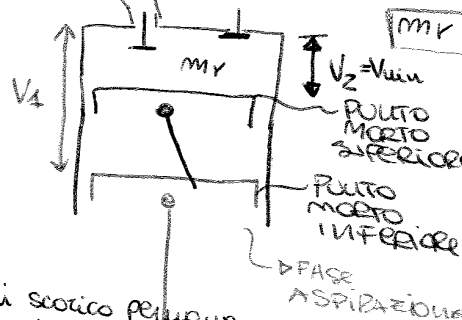 mr
mr
V1
V2=Vmin
PUNTO
MORTO
SUPERIORE
PUNTO
MORTO
INFERIORE
FASE
ASPIRAZIONE
di scarico permane